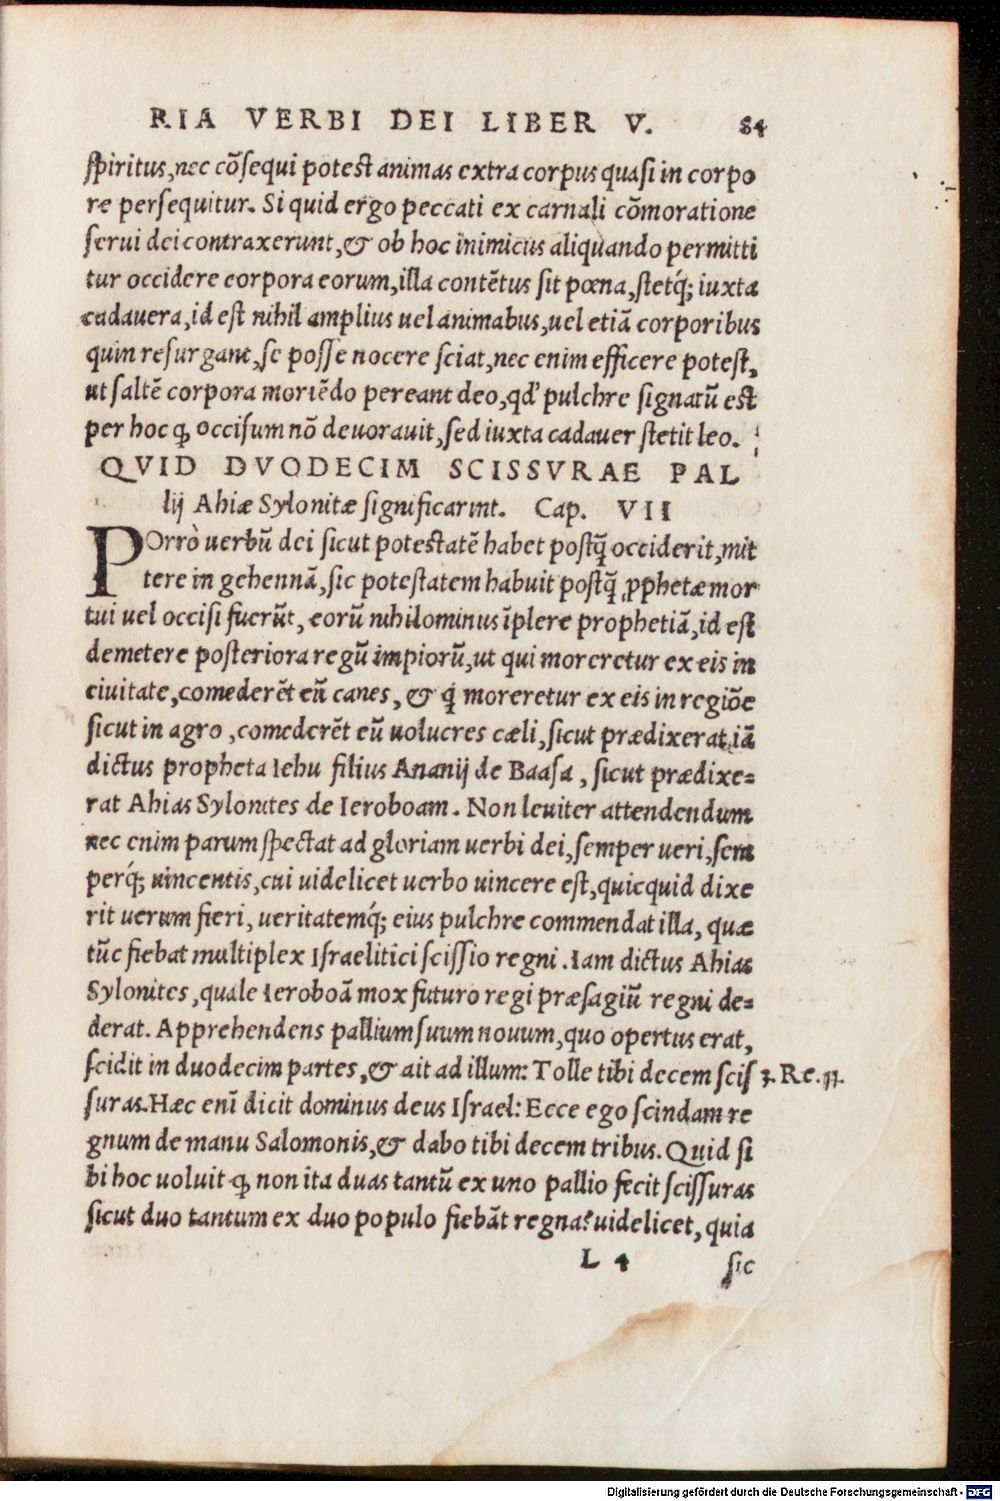 RIA VERBI DEI LIBER V. 84
spiritus, nec cõsequi potest animas extra corpus quasi in corpo
re persequitur. Si quid ergo peccati ex carnali cõmoratione
serui dei contraxerunt, & ob hoc inimicus aliquando permitti
tur occidere corpora eorum, illa contẽtus sit pœna, stetq́; iuxta
cadauera, id est nihil amplius uel animabus, uel etiã corporibus
quin resurgant, se posse nocere sciat, nec enim efficere potest,
ut saltẽ corpora moriẽdo pereant deo, qd' pulchre signatũ est
per hoc ꝙ occisum nõ deuorauit, sed iuxta cadauer stetit leo.
QVID DVODECIM SCISSVRAE PAL
lij Ahiæ Sylonitæ significarint. Cap. VII
POrrò uerbũ dei sicut potestatẽ habet postq̃ occiderit, mit
tere in gehennã, sic potestatem habuit postq̃ ꝓphetæ mor
tui uel occisi fuerũt, eorũ nihilominus ĩplere prophetiã, id est
demetere posteriora regũ impiorũ, ut qui moreretur ex eis in
ciuitate, comederẽt eũ canes, & q́ moreretur ex eis in regiõe
sicut in agro, comederẽt eũ uolucres cæli, sicut prædixerat iã
dictus propheta Iehu filius Ananij de Baasa, sicut prædixe=
rat Ahias Sylonites de Ieroboam. Non leuiter attendendum
nec enim parum spectat ad gloriam uerbi dei, semper ueri, sem
perq́; uincentis, cui uidelicet uerbo uincere est, quicquid dixe
rit uerum fieri, ueritatemq́; eius pulchre commendat illa, quæ
tũc fiebat multiplex Israelitici scissio regni. Iam dictus Ahias
Sylonites, quale Ieroboã mox futuro regi præsagiũ regni de=
derat. Apprehendens pallium suum nouum, quo opertus erat,
scidit in duodecim partes, & ait ad illum: Tolle tibi decem scis 3. Re. 11.
suras. Hæc enĩ dicit dominus deus Israel: Ecce ego scindam re
gnum de manu Salomonis, & dabo tibi decem tribus. Quid si
bi hoc uoluit ꝙ non ita duas tantũ ex uno pallio fecit scissuras
sicut duo tantum ex duo populo fiebãt regna? uidelicet, quia
L 4 sic
Digitalisierung gefördert durch die Deutsche Forschungsgemeinschaft - DFG